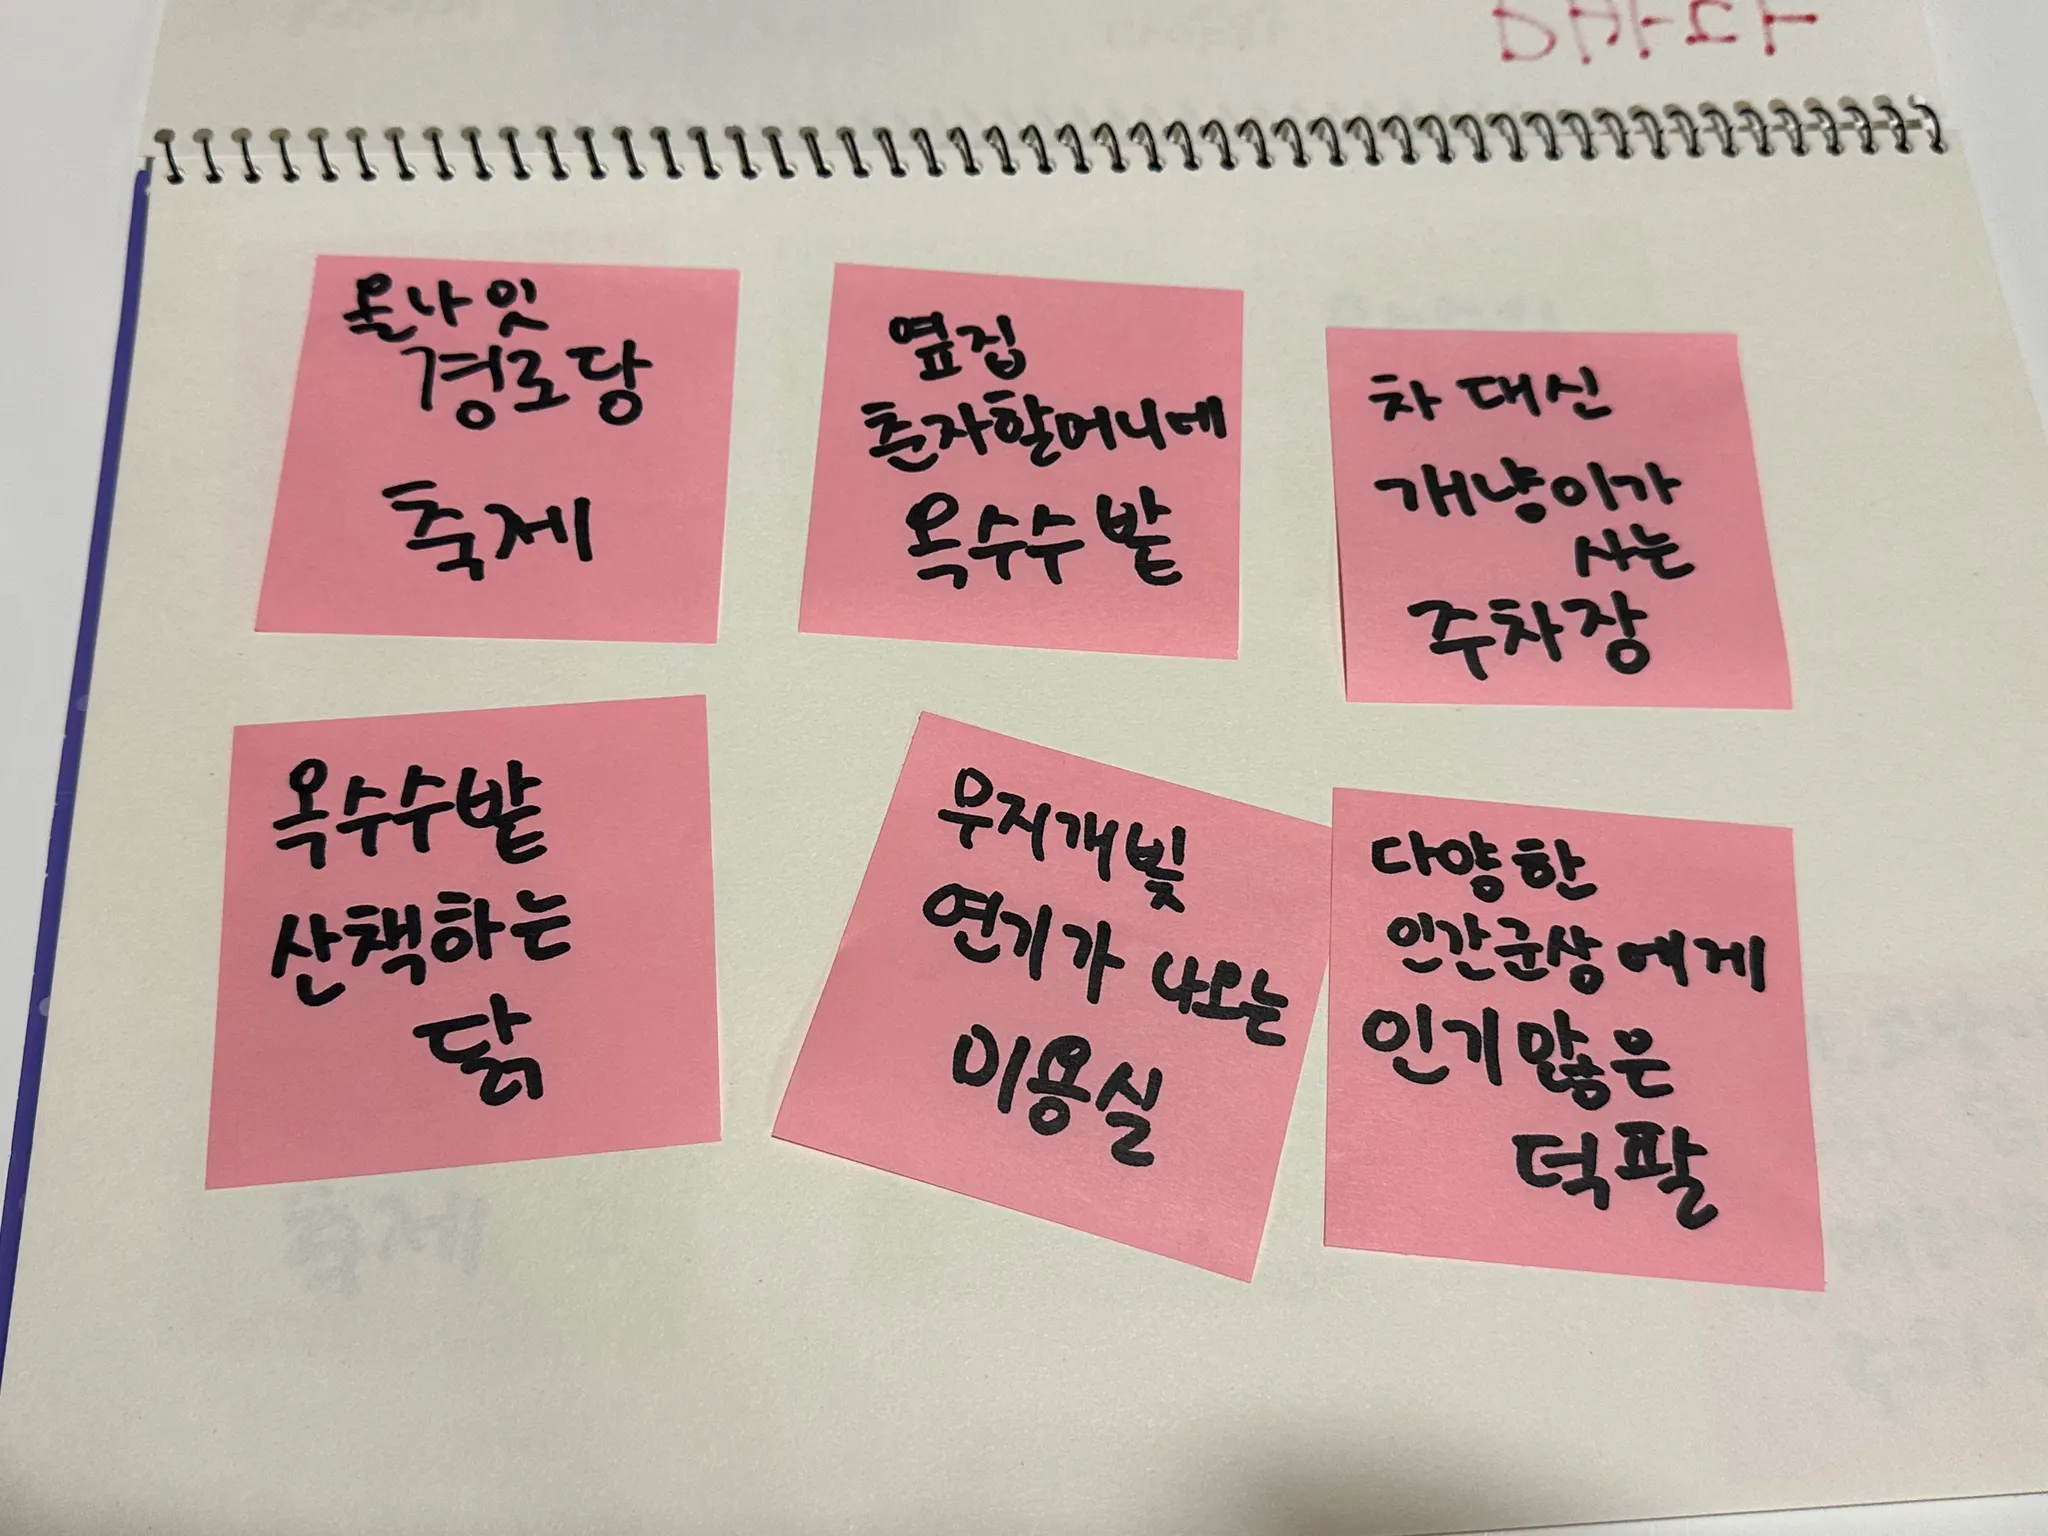 올나잇
경로당
축제
옆집
춘자할머니네
옥수수밭
차 대신
개냥이가
사는
주차장
옥수수밭
산책하는
닭
무지개빛
연기가 나오는
미용실
다양한
인간군상에게
인기많은
덕팔